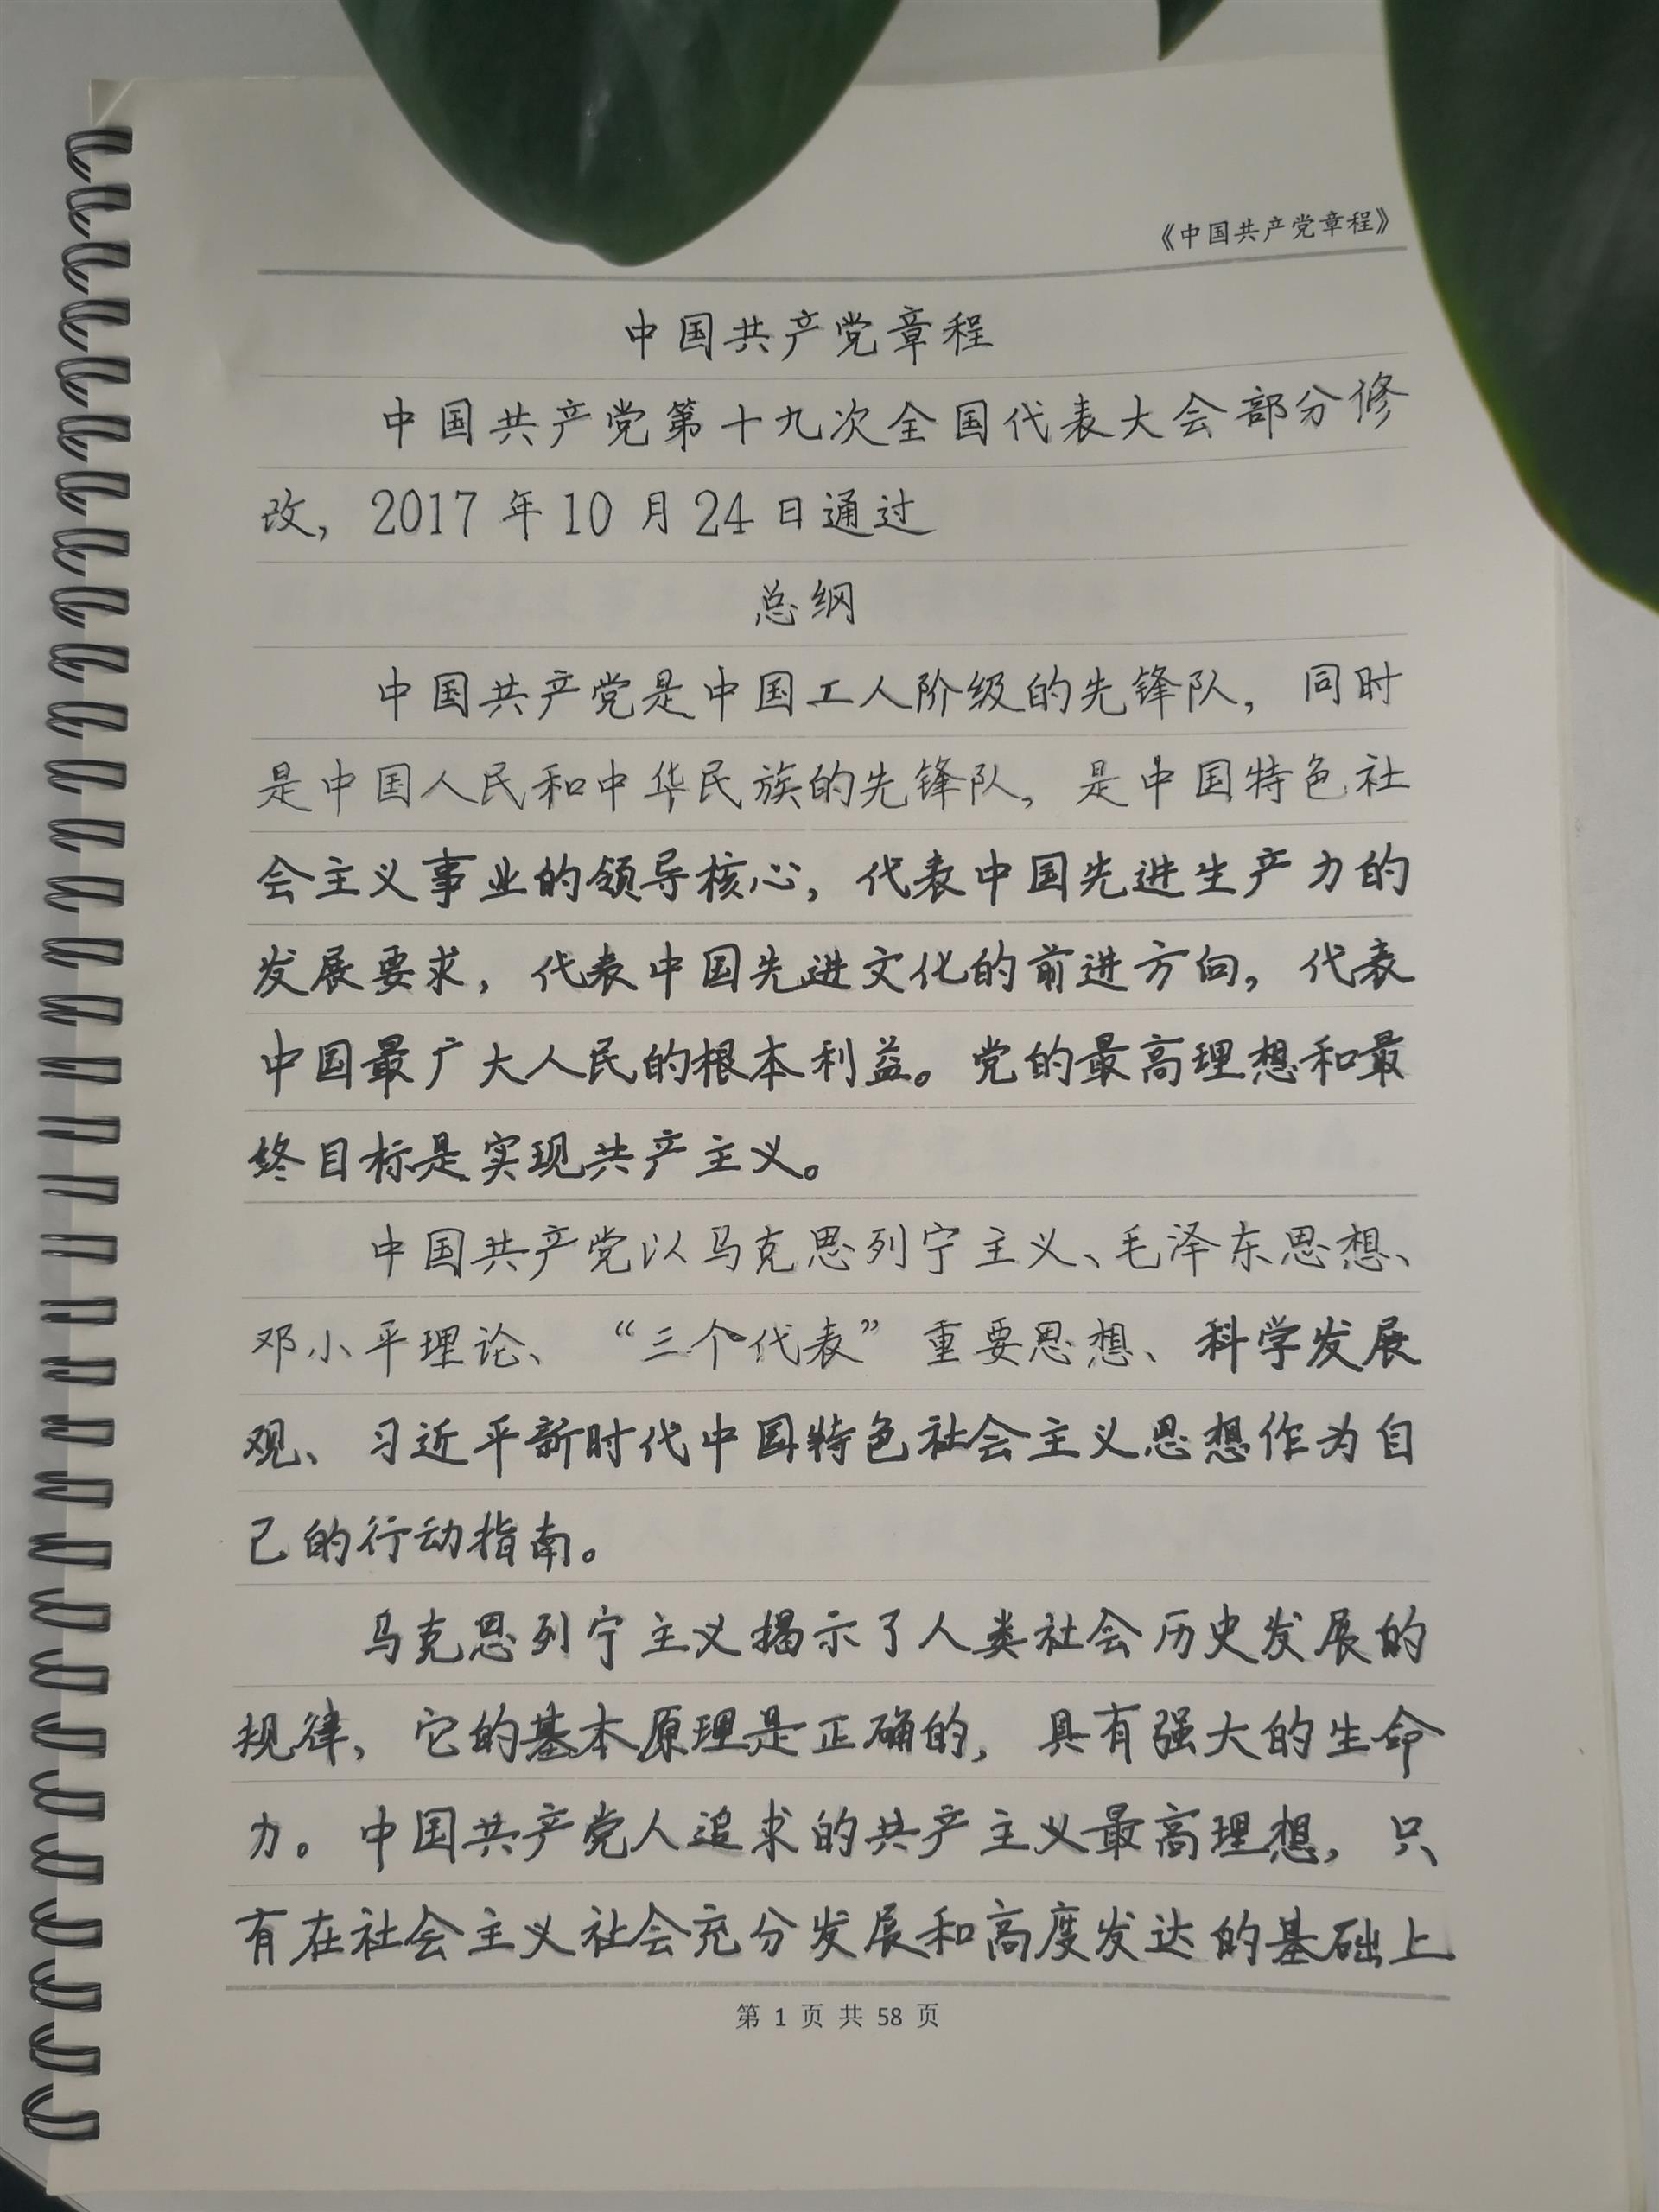 《中国共产党章程》
中国共产党章程
中国共产党第十九次全国代表大会部分修
改，2017年10月24日通过
总纲
中国共产党是中国工人阶级的先锋队，同时
是中国人民和中华民族的先锋队，是中国特色社
会主义事业的领导核心，代表中国先进生产力的
发展要求，代表中国先进文化的前进方向，代表
中国最广大人民的根本利益。党的最高理想和最
终目标是实现共产主义。
中国共产党以马克思列宁主义、毛泽东思想、
邓小平理论、“三个代表”重要思想、科学发展
观、习近平新时代中国特色社会主义思想作为自
己的行动指南。
马克思列宁主义揭示了人类社会历史发展的
规律，它的基本原理是正确的，具有强大的生命
力。中国共产党人追求的共产主义最高理想，只
有在社会主义社会充分发展和高度发达的基础上
第 1 页 共 58 页